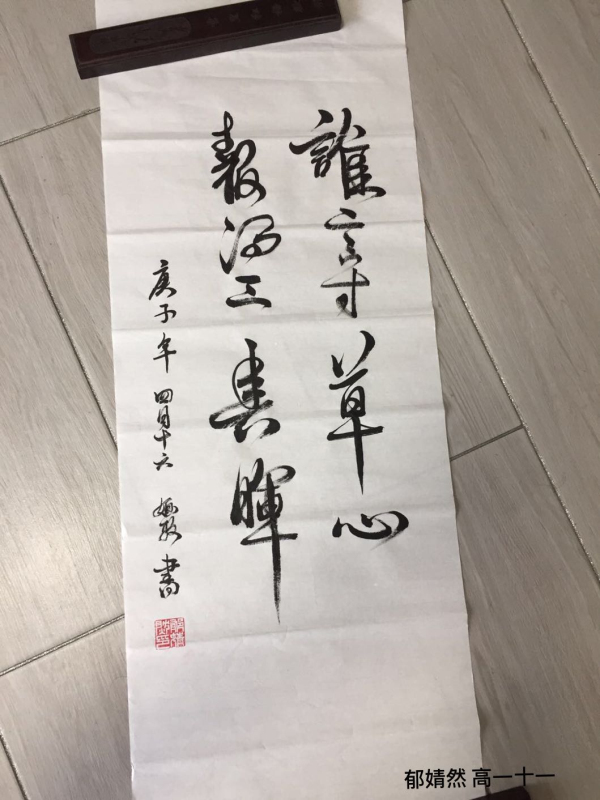 誰言寸草心
報得三春暉
庚子年 四月十六 書
郁婧然 高一十一